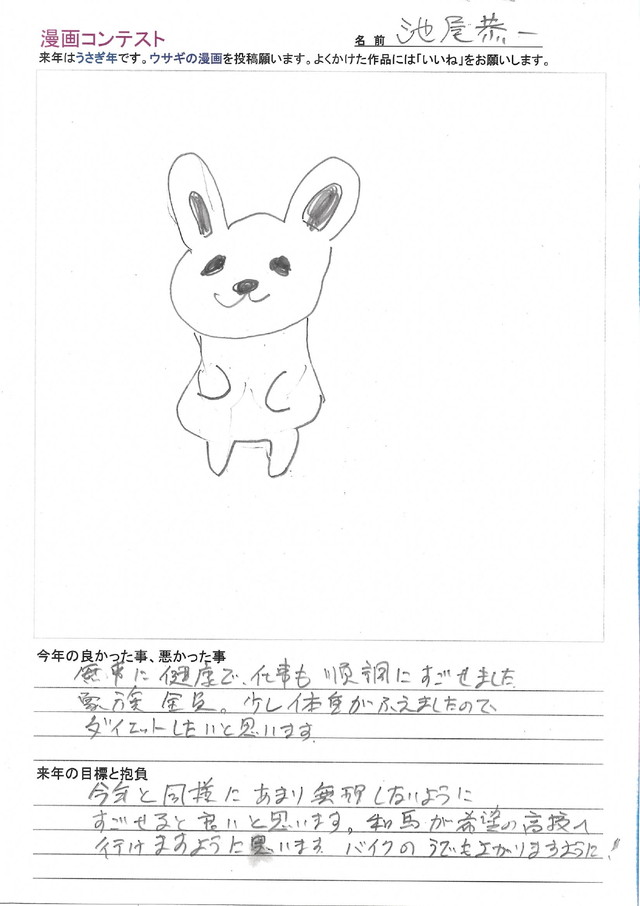 漫画コンテスト
名前 池尾恭一
来年はうさぎ年です。ウサギの漫画を投稿願います。よくかけた作品には「いいね」をお願いします。
今年の良かった事、悪かった事
無事に健康で、仕事も順調にすごせました
家族全員。少し体重がふえましたので、
ダイエットしたいと思います。
来年の目標と抱負
今年と同様にあまり無理しないように
すごせると良いと思います。和馬が希望の高校へ
行けますように思います バイクのうでも上がりますように!!